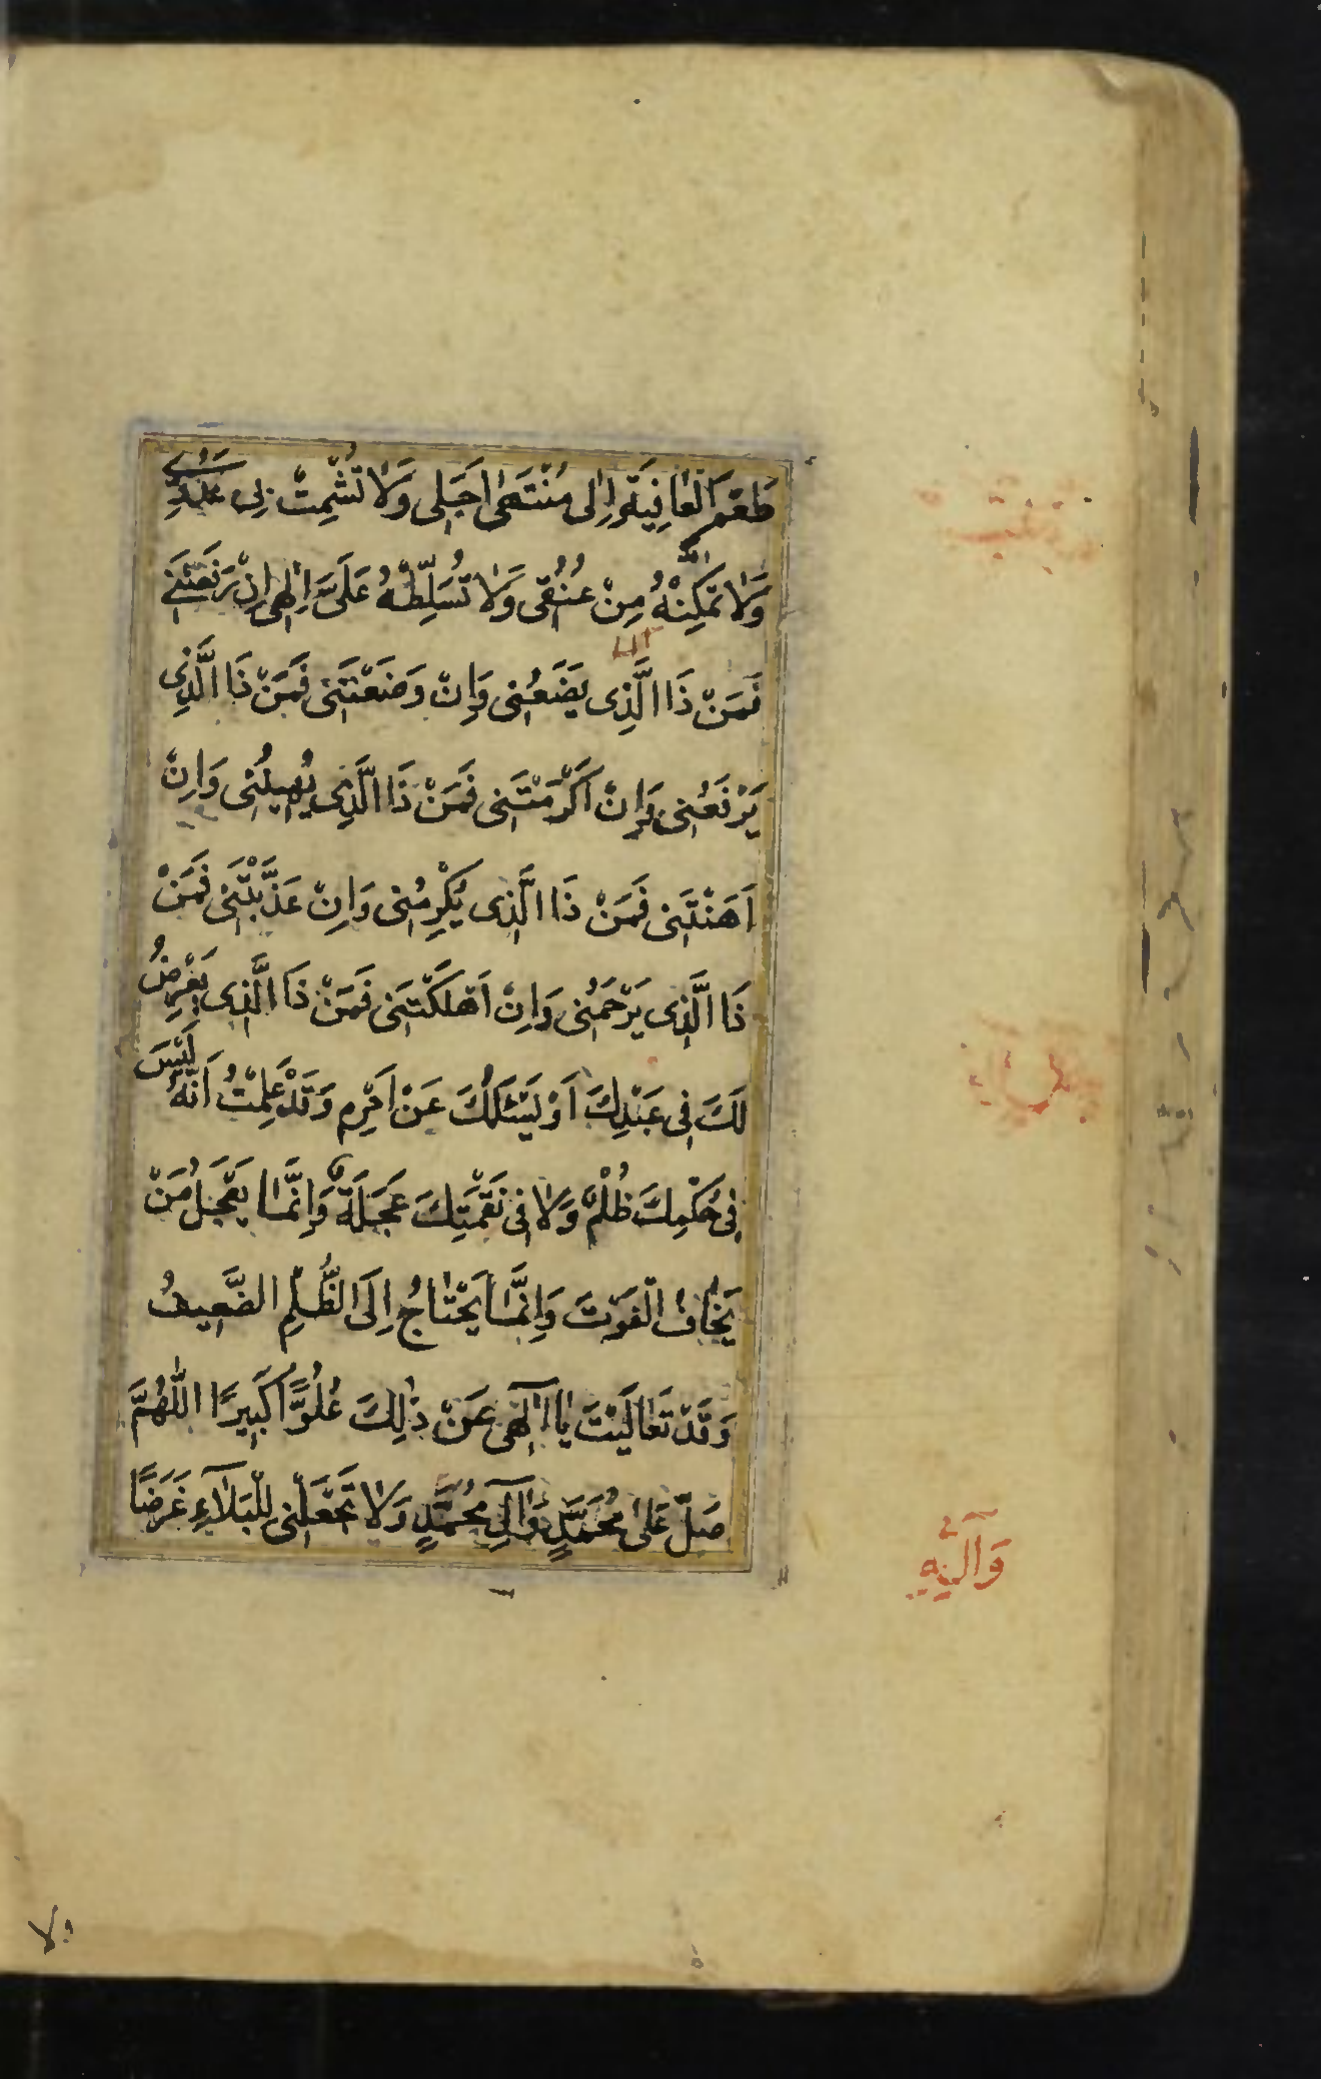 طَعْمَ الْعَافِيَةِ اِلٰى مُنْتَهٰى اَجَلِى وَلَا تُشْمِتْ بِى عَدُوِّى
وَلَا تُمَكِّنْهُ مِنْ عُنُقِى وَلَا تُسَلِّطْهُ عَلَىَّ اِلٰهِى اِنْ رَفَعْتَنِى
فَمَنْ ذَا الَّذِى يَضَعُنِى وَاِنْ وَضَعْتَنِى فَمَنْ ذَا الَّذِى
يَرْفَعُنِى وَاِنْ اَكْرَمْتَنِى فَمَنْ ذَا الَّذِى يُهِينُنِى وَاِنْ
اَهَنْتَنِى فَمَنْ ذَا الَّذِى يُكْرِمُنِى وَاِنْ عَذَّبْتَنِى فَمَنْ
ذَا الَّذِى يَرْحَمُنِى وَاِنْ اَهْلَكْتَنِى فَمَنْ ذَا الَّذِى يَعْرِضُ
لَكَ فِى عَبْدِكَ اَوْ يَسْئَلُكَ عَنْ اَمْرِهِ وَقَدْ عَلِمْتُ اَنَّهُ لَيْسَ
فِى حُكْمِكَ ظُلْمٌ وَلَا فِى نَقْمَتِكَ عَجَلَةٌ وَاِنَّمَا يَعْجَلُ مَنْ
يَخَافُ الْفَوْتَ وَاِنَّمَا يَحْتَاجُ اِلَى الظُّلْمِ الضَّعِيفُ
وَقَدْ تَعَالَيْتَ يَا اِلٰهِى عَنْ ذٰلِكَ عُلُوًّا كَبِيرًا اَللّٰهُمَّ
صَلِّ عَلٰى مُحَمَّدٍ وَاٰلِ مُحَمَّدٍ وَلَا تَجْعَلْنِى لِلْبَلَآءِ غَرَضًا
وَآلِهِ
ولا